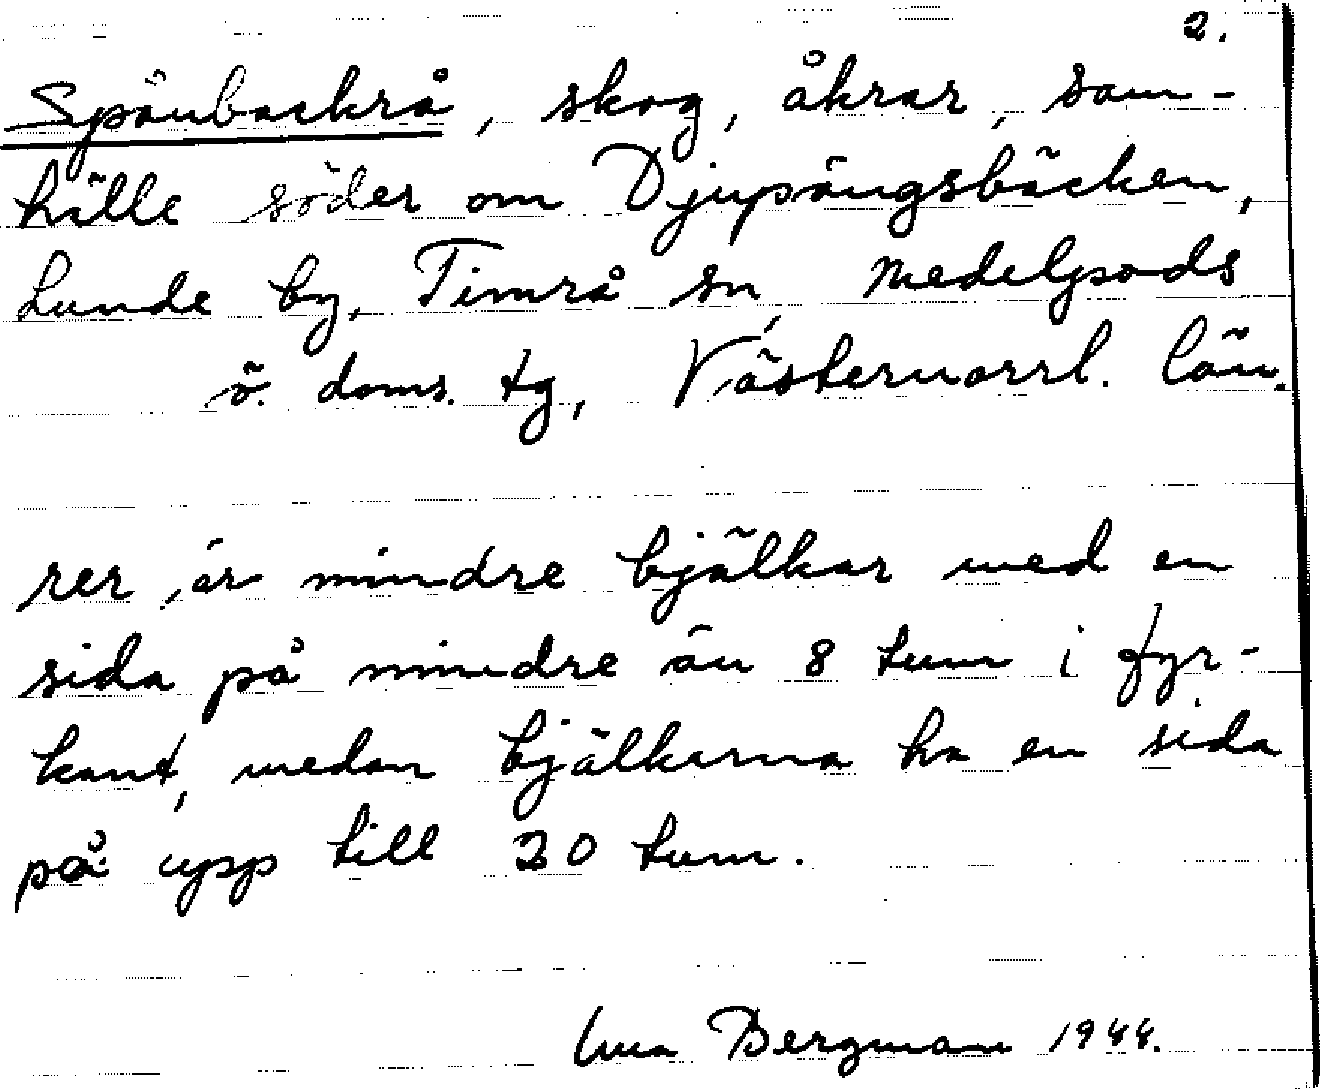 2.
Spånbackrå, skog, åkrar, sam-
hälle söder om Djupängsbäcken,
Lunde by, Timrå sn, Medelpads
ö. doms. tg, Västernorrl. län.
rer är mindre bjälkar med en
sida på mindre än 8 tum i fyr-
kant, medan bjälkarna ha en sida
på upp till 20 tum.
Bergman 1944.